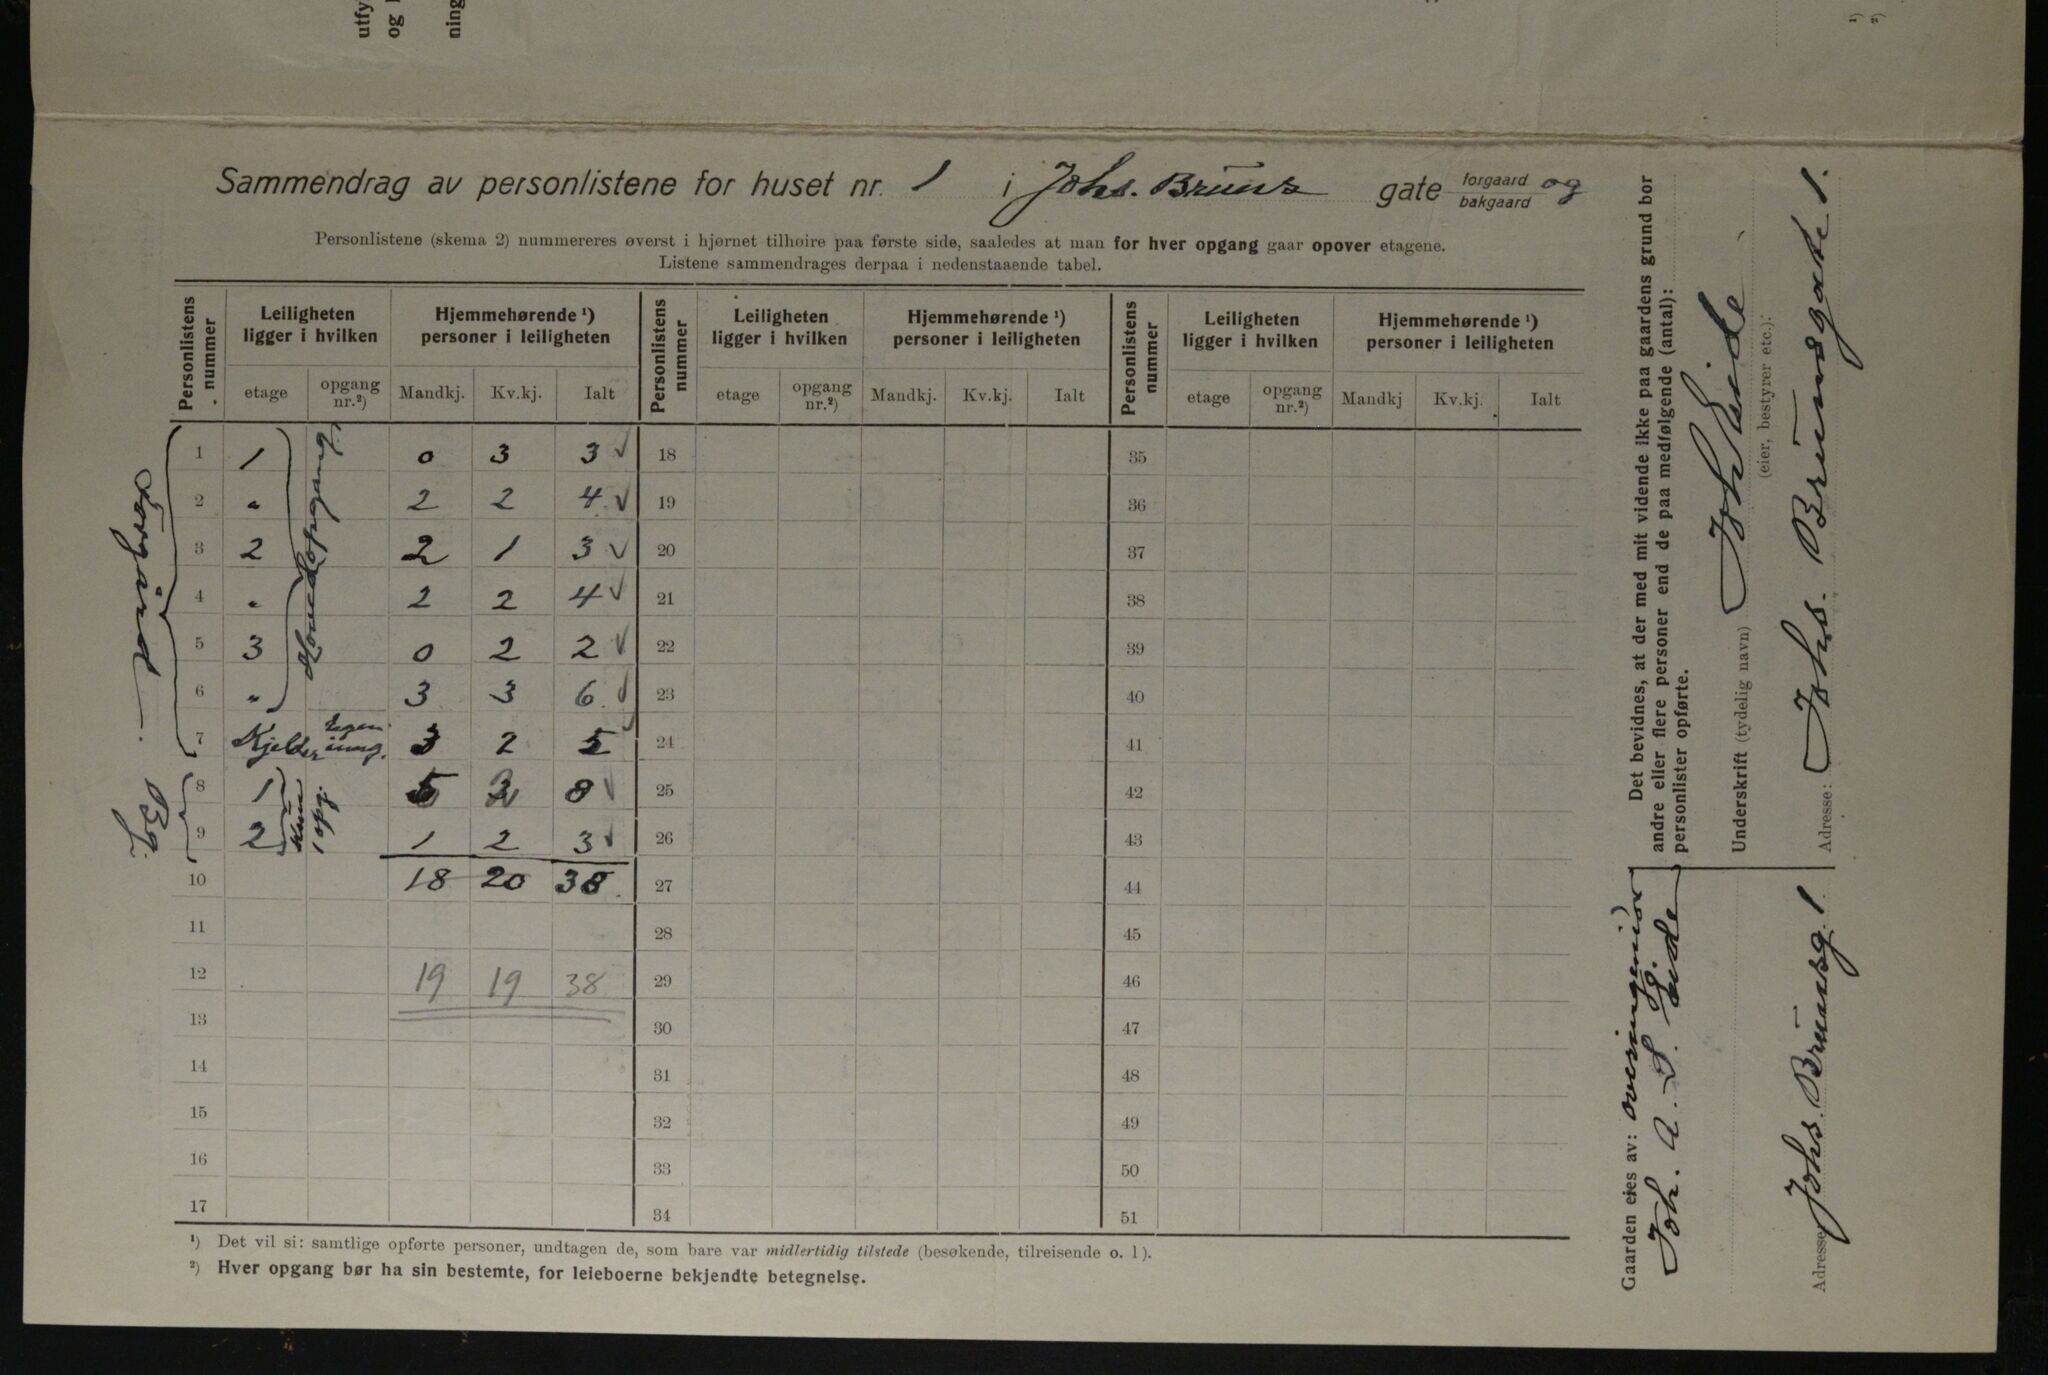 utfy
og
ning
¹)
²)
Sammendrag av personlistene for huset nr. 1 i Johs. Bruns gate forgaard og bakgaard
Personlistene (skema 2) nummereres øverst i hjørnet tilhøire paa første side, saaledes at man for hver opgang gaar opover etagene.
Listene sammendrages derpaa i nedenstaaende tabel.
Personlistens nummer | Leiligheten ligger i hvilken | Hjemmehørende ¹) personer i leiligheten | Personlistens nummer | Leiligheten ligger i hvilken | Hjemmehørende ¹) personer i leiligheten | Personlistens nummer | Leiligheten ligger i hvilken | Hjemmehørende ¹) personer i leiligheten
etage | opgang nr.²) | Mandkj. | Kv.kj. | Ialt | etage | opgang nr.²) | Mandkj. | Kv.kj. | Ialt | etage | opgang nr.²) | Mandkj | Kv.kj. | Ialt
Forgård
Hovedopgang
1 | 1 | 0 | 3 | 3 ✓ | 18 | 35
2 | " | 2 | 2 | 4 ✓ | 19 | 36
3 | 2 | 2 | 1 | 3 ✓ | 20 | 37
4 | " | 2 | 2 | 4 ✓ | 21 | 38
5 | 3 | 0 | 2 | 2 ✓ | 22 | 39
6 | " | 3 | 3 | 6 ✓ | 23 | 40
7 | Kjelder | egen inng. | 3 | 2 | 5 ✓ | 24 | 41
Bg.
kun 1 opg.
8 | 1 | 5 | 3 | 8 ✓ | 25 | 42
9 | 2 | 1 | 2 | 3 ✓ | 26 | 43
10 | 18 | 20 | 38 | 27 | 44
11 | 28 | 45
12 | 19 | 19 | 38 | 29 | 46
13 | 30 | 47
14 | 31 | 48
15 | 32 | 49
16 | 33 | 50
17 | 34 | 51
¹) Det vil si: samtlige opførte personer, undtagen de, som bare var midlertidig tilstede (besøkende, tilreisende o. l).
²) Hver opgang bør ha sin bestemte, for leieboerne bekjendte betegnelse.
Det bevidnes, at der med mit vidende ikke paa gaardens grund bor
andre eller flere personer end de paa medfølgende (antal):
personlister opførte.
Underskrift (tydelig navn) Joh Eide
(eier, bestyrer etc.):
Adresse: Johs. Brunsgate 1.
Gaarden eies av: overingeniør
Joh. A. S. Eide
Adresse: Johs. Brunsg. 1